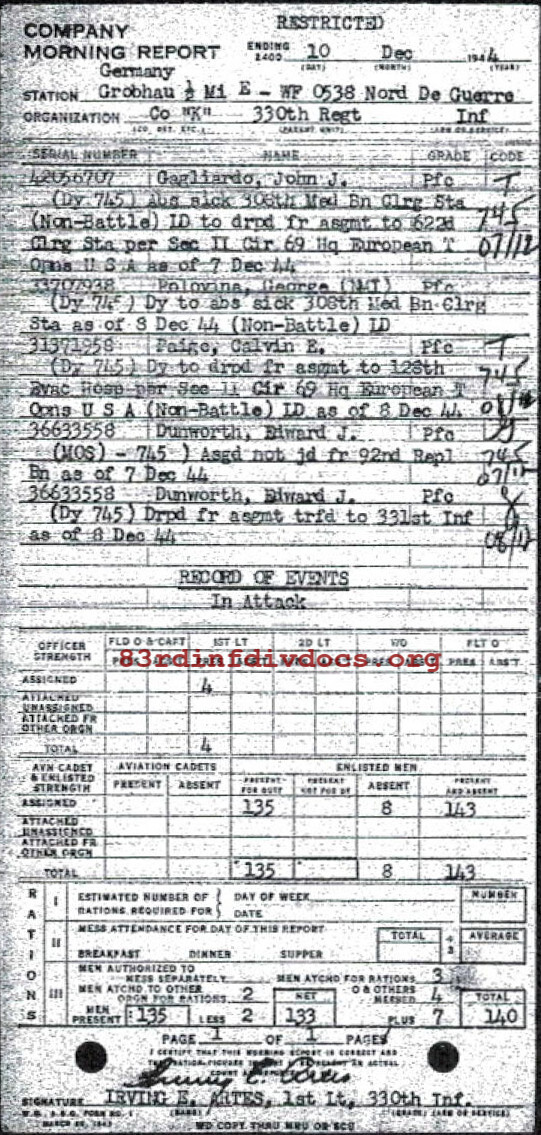 RESTRICTED
COMPANY
MORNING REPORT ENDING 2400 10 Dec 1944
(DAY) (MONTH) (YEAR)
Germany
STATION Grobhau ½ Mi E - WF 0538 Nord De Guerre
ORGANIZATION Co "K" 330th Regt Inf
(CO. DET. ETC.) (PARENT UNIT) (ARM OR SERVICE)
SERIAL NUMBER NAME GRADE CODE
42056707 Gagliardo, John J. Pfc T
(Dy 745) Abs sick 308th Med Bn Clrg Sta
(Non-Battle) LD to drpd fr asgmt to 622d 745
Clrg Sta per Sec II Cir 69 Hq European T 07/12
Opns U S A as of 7 Dec 44
33707938 Polovina, George (NMI) Pfc
(Dy 745) Dy to abs sick 308th Med Bn Clrg
Sta as of 8 Dec 44 (Non-Battle) LD
31371958 Paige, Calvin E. Pfc T
(Dy 745) Dy to drpd fr asgmt to 128th 745
Evac Hosp per Sec II Cir 69 Hq European T
Opns U S A (Non-Battle) LD as of 8 Dec 44
36633558 Dunworth, Edward J. Pfc
(MOS) - 745 ) Asgd not jd fr 92nd Repl 745
Bn as of 7 Dec 44 07/12
36633558 Dunworth, Edward J. Pfc
(Dy 745) Drpd fr asgmt trfd to 331st Inf
as of 8 Dec 44 08/12
RECORD OF EVENTS
In Attack
OFFICER STRENGTH FLD O & CAPT 1ST LT 2D LT W/O FLT O
83rdinfdivdocs.org
PRES ABS'T
ASSIGNED 4
ATTACHED UNASSIGNED
ATTACHED FR OTHER ORGN
TOTAL 4
AVN CADET & ENLISTED STRENGTH AVIATION CADETS ENLISTED MEN
PRESENT ABSENT PRESENT FOR DUTY PRESENT NOT FOR DY ABSENT PRESENT AND ABSENT
ASSIGNED 135 8 143
ATTACHED UNASSIGNED
ATTACHED FR OTHER ORGN
TOTAL 135 8 143
RATIONS
I ESTIMATED NUMBER OF RATIONS REQUIRED FOR { DAY OF WEEK DATE NUMBER
II MESS ATTENDANCE FOR DAY OF THIS REPORT TOTAL ÷ 3 AVERAGE
BREAKFAST DINNER SUPPER
III MEN AUTHORIZED TO MESS SEPARATELY MEN ATCHD FOR RATIONS 3
MEN ATCHD TO OTHER ORGN FOR RATIONS 2 NET O & OTHERS MESSED 4 TOTAL
MEN PRESENT 135 LESS 2 133 PLUS 7 140
PAGE 1 OF 1 PAGES
I CERTIFY THAT THIS MORNING REPORT IS CORRECT AND
Irving E. Artes
SIGNATURE IRVING E. ARTES, 1st Lt, 330th Inf.
W.D. A.G.O. FORM NO. 1 (NAME) (GRADE) (ARM OR SERVICE)
WD COPY THRU MRU OR SCU